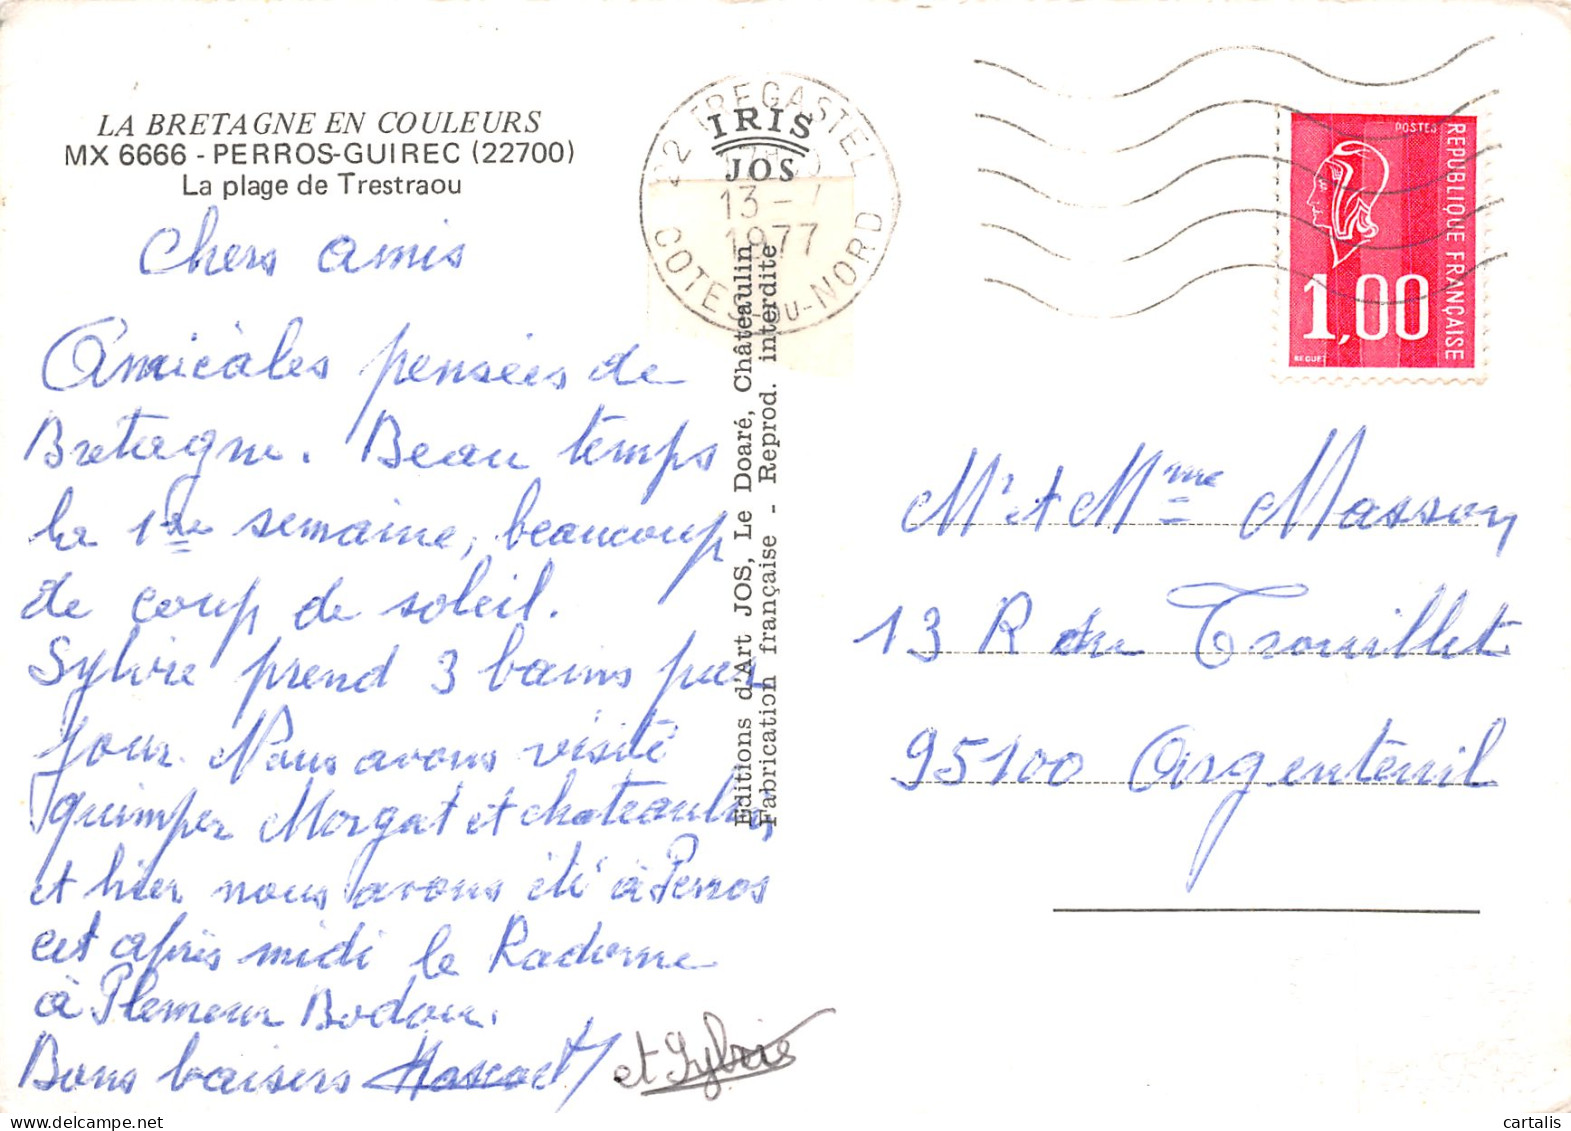 LA BRETAGNE EN COULEURS
MX 6666 - PERROS-GUIREC (22700)
La plage de Trestraou
Chers amis
Amicàles pensées de
Bretagne. Beau temps
la 1ère semaine, beaucoup
de coup de soleil.
Sylvie prend 3 bains par
jour. Nous avons visité
quimper Morgat et chateaulin,
et hier nous avons été à Perros
cet après midi le Radome
à Plemeur Bodou.
Bons baisers
et Sylvie
22 TREGASTEL
13 - 7
1977
COTES-DU-NORD
IRIS
JOS
Editions d'Art JOS, Le Doaré, Châteaulin
Fabrication française - Reprod. interdite
POSTES
REPUBLIQUE FRANÇAISE
1,00
BEQUET
Mr et Mme Masson
13 R du Trouillet
95100 Argenteuil
cartalis